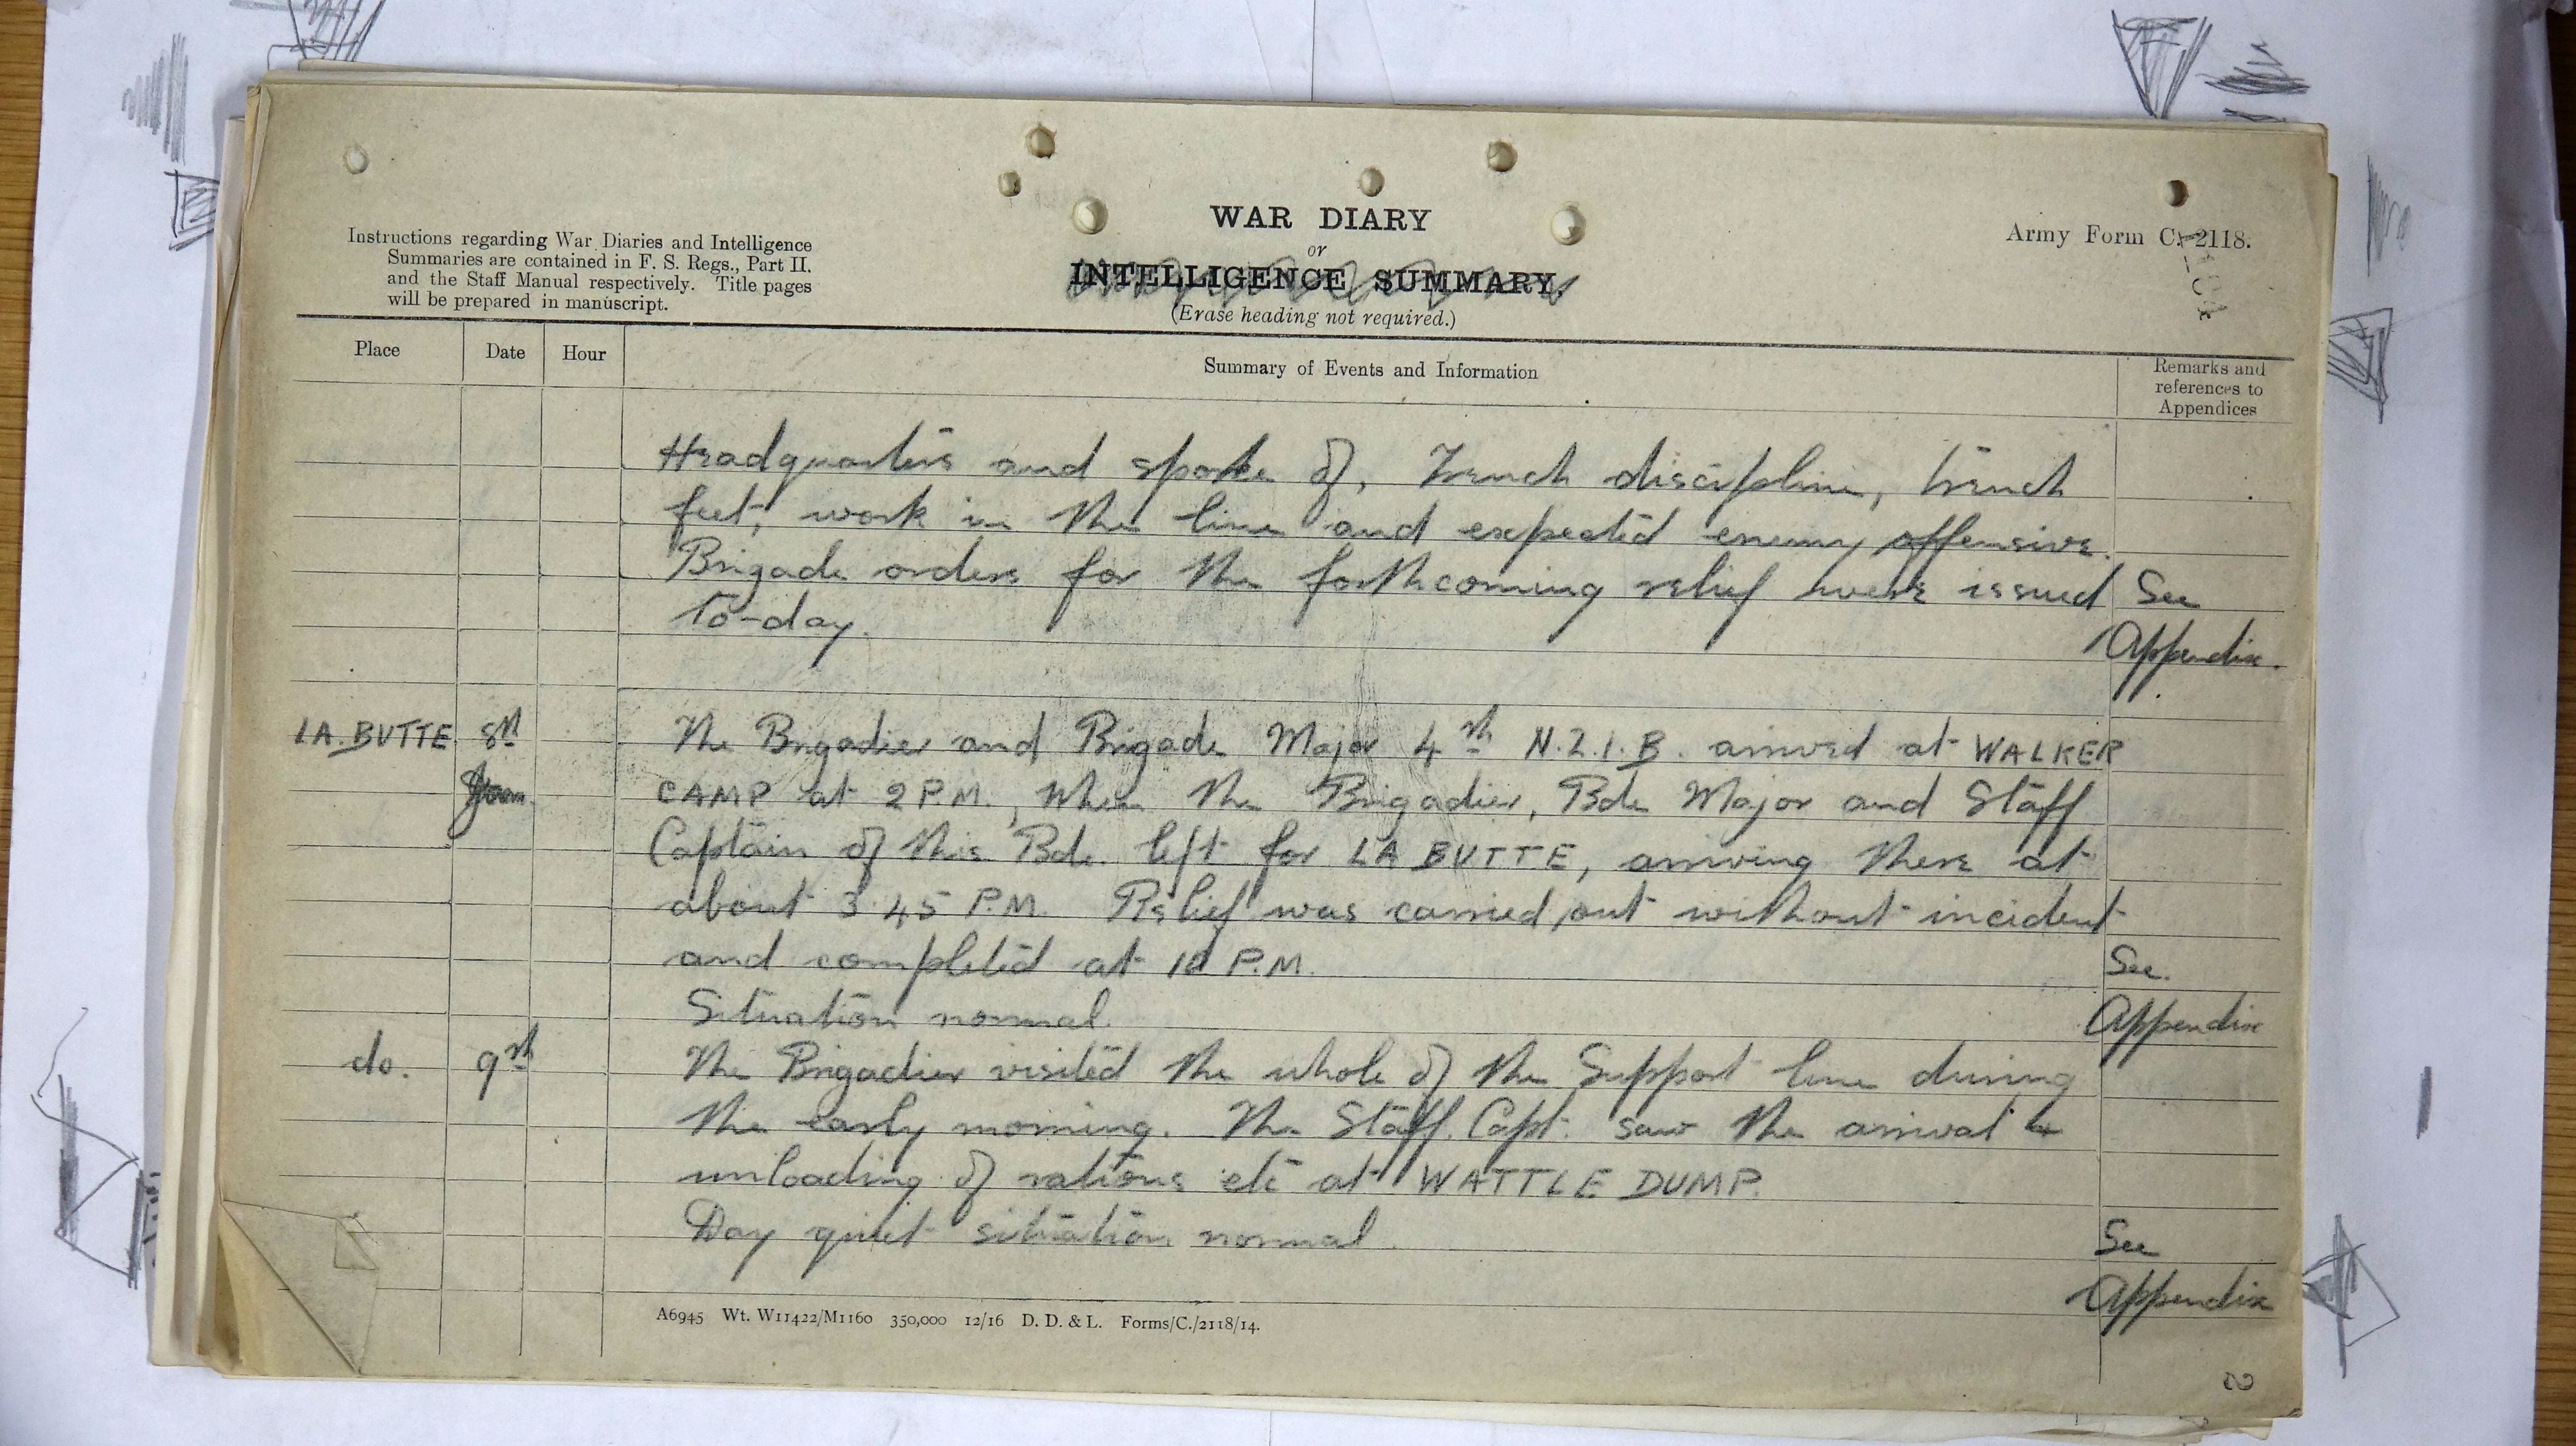 WAR DIARY
or
INTELLIGENCE SUMMARY.
(Erase heading not required.)
Instructions regarding War Diaries and Intelligence
Summaries are contained in F. S. Regs., Part II.
and the Staff Manual respectively. Title pages
will be prepared in manuscript.
Army Form C. 2118.
Place Date Hour Summary of Events and Information Remarks and
references to
Appendices
Headquarters and spoke of, Trench discipline, trench
feet, work in the line and expected enemy offensive.
Brigade orders for the forthcoming relief were issued See
to-day. Appendix.
LA.BUTTE. 8th The Brigadier and Brigade Major 4th N.Z.I.B. arrived at WALKER
CAMP at 2 P.M., when the Brigadier, Bde Major and Staff
Captain of this Bde. left for LA BUTTE, arriving there at
about 3.45 P.M. Relief was carried out without incident
and completed at 10 P.M. See.
Situation normal. Appendix
do. 9th The Brigadier visited the whole of the Support line during
the early morning. The Staff. Capt. saw the arrival &
unloading of rations etc at WATTLE DUMP.
Day quiet situation normal. See
Appendix
A6945 Wt. W11422/M1160 350,000 12/16 D. D. & L. Forms/C./2118/14.